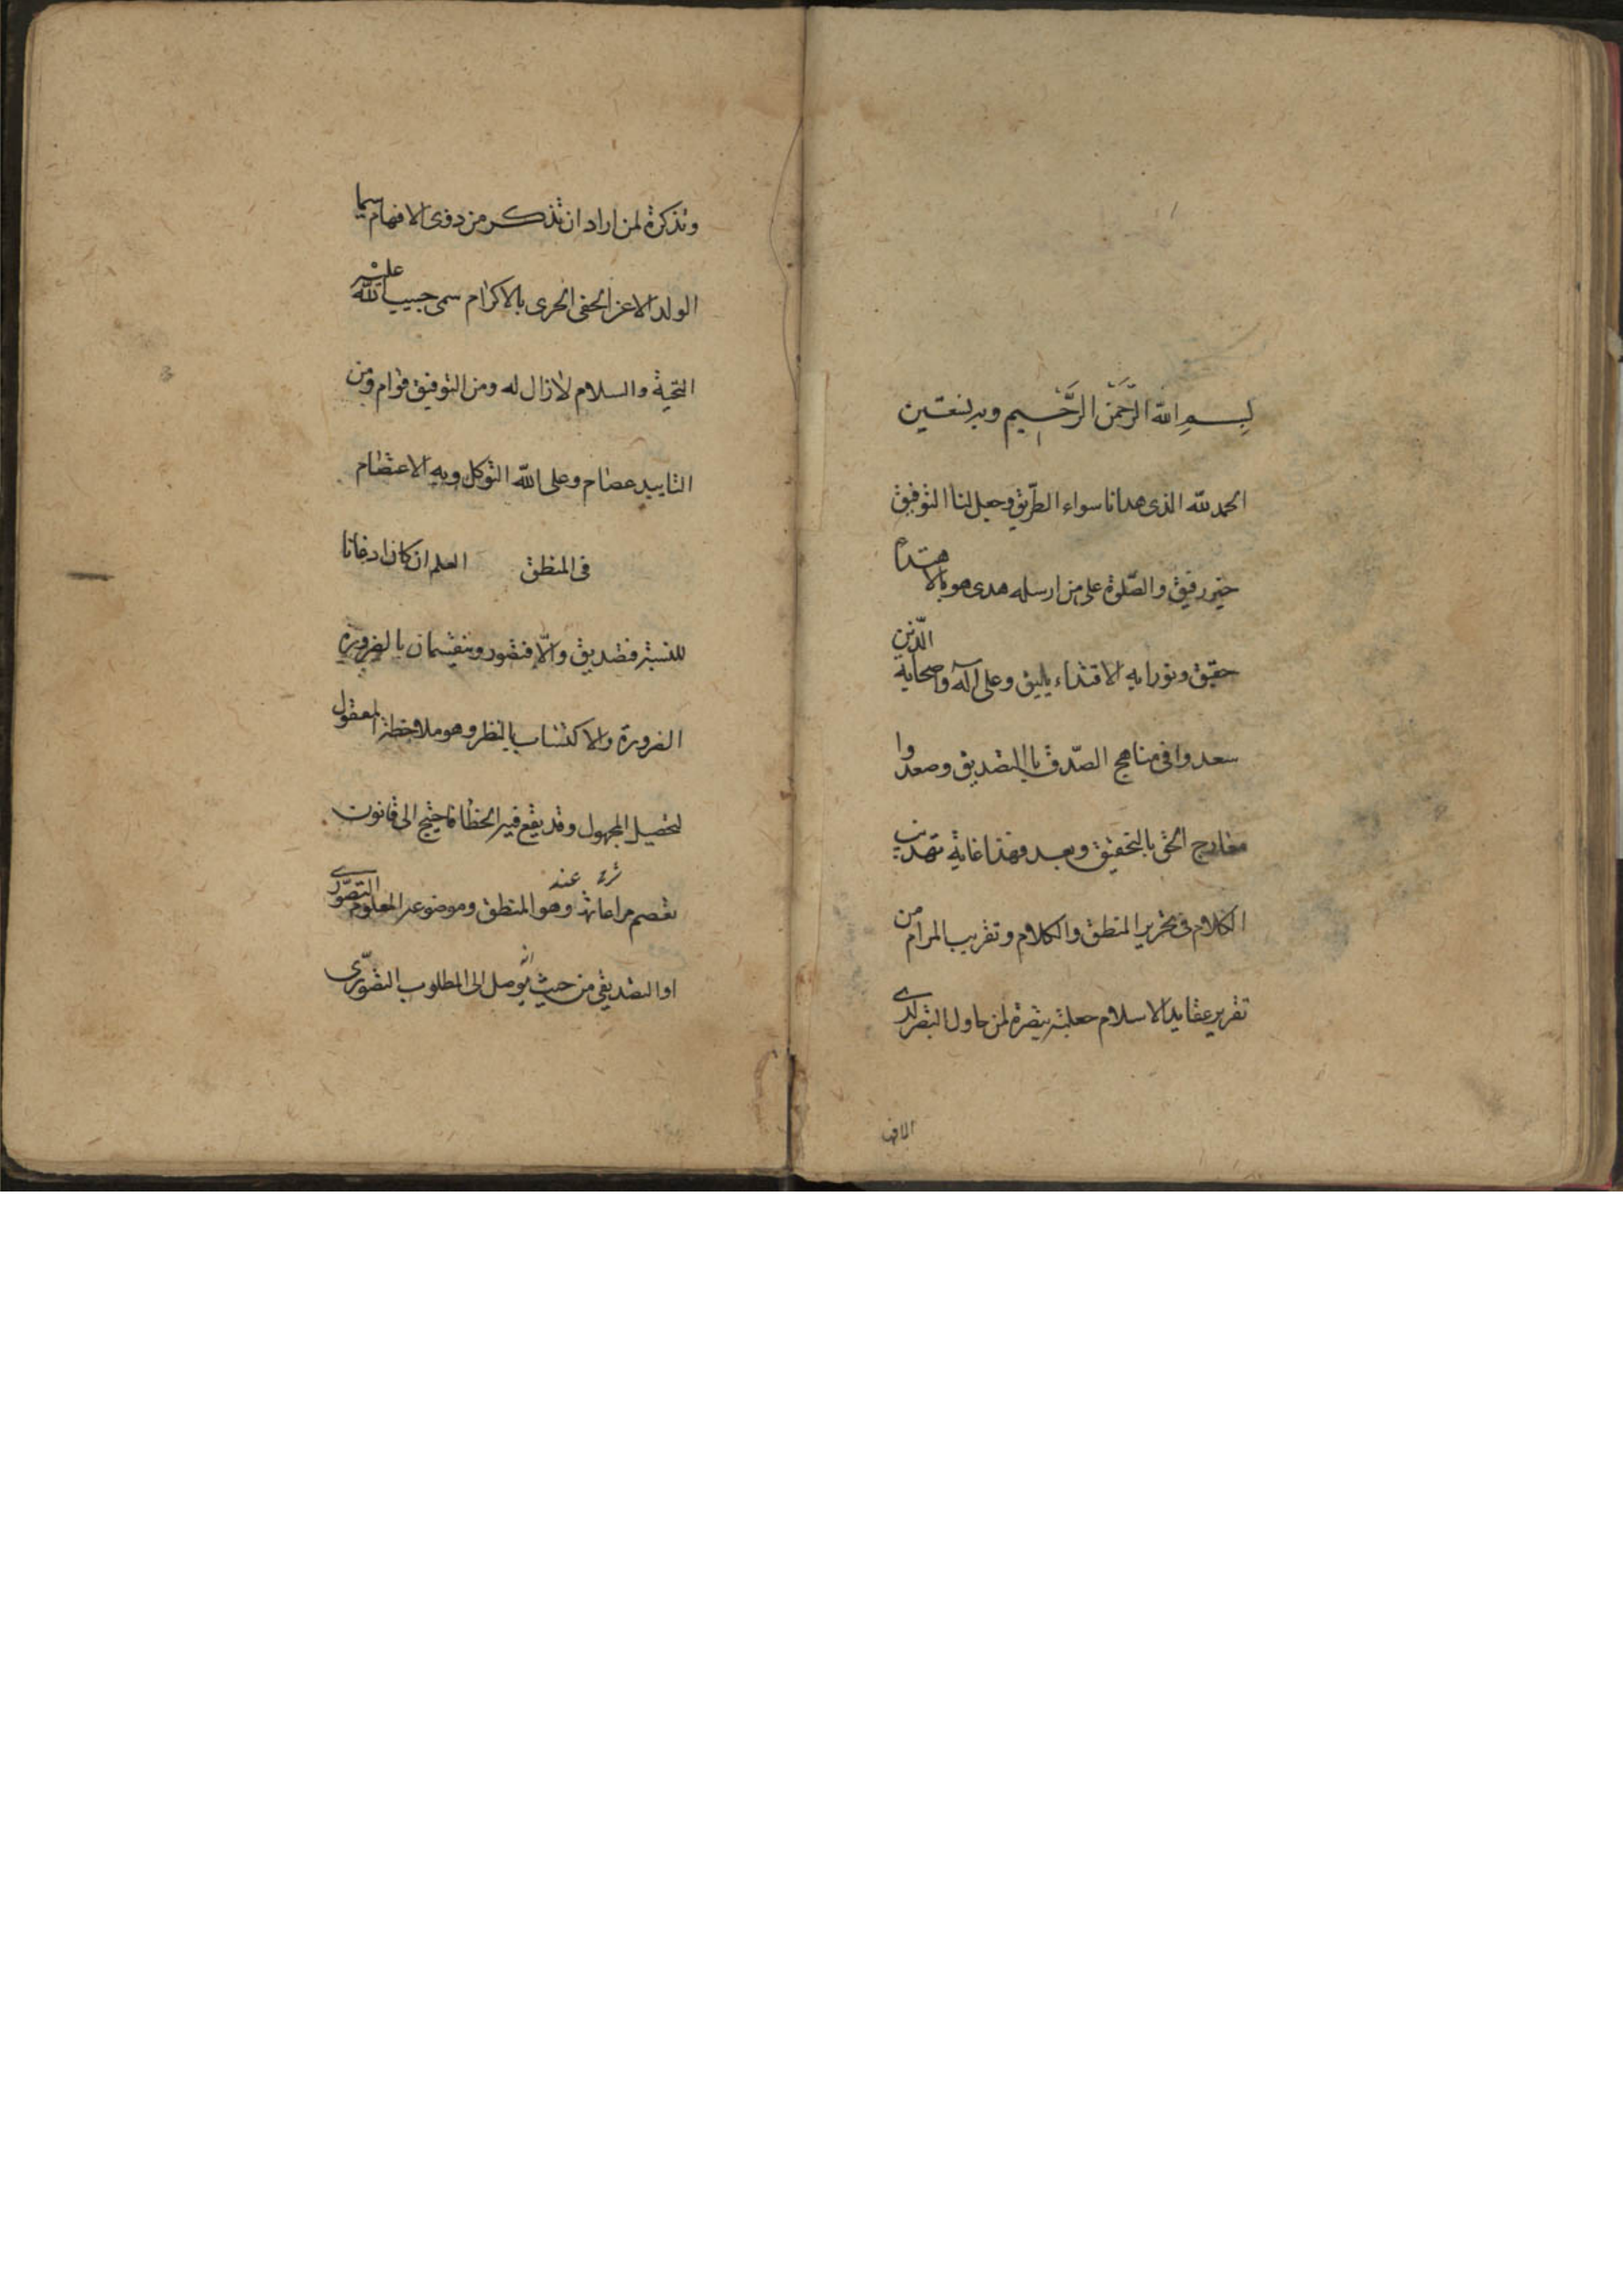 بِسمِ الله الرَّحمَن الرَّحيم وبه نستعين
الحمد لله الذى هدانا سواء الطّريق وجعل لنا التوفيق
خير رفيق والصّلوة على من ارسله هدى هو بالاهتداء
حقيق ونورا به الاقتداء يليق وعلى آله واصحابه الّذين
سعدوا فى مناهج الصّدق باالتصديق وصعدوا
معارج الحق بالتحقيق وبعد فهذا غاية تهذيب
الكلام فى تحرير المنطق والكلام وتقريب المرام من
تقرير عقايد الاسلام جعلته تبصرة لمن حاول التبصر لدى
الافهـ
وتذكرة لمن اراد ان تذكر من ذوى الافهام سيما
الولد الاعز الحفى الحرى بالاكرام سمى حبيب الله عليه
التحية والسلام لازال له ومن التوفيق قوام ومن
التاييد عصام وعلى الله التوكل وبه الاعتصام
فى المنطق العلم ان كان اذعانا
للنسبة فتصديق والّا فتصور وينقسمان بالضرورة
الضرورة والاكتساب بالنظر وهو ملاحظة المعقول
لتحصيل المجهول وقد يقع فيه الخطا فاحتيج الى قانون
تعصم مراعاتها عنه وهو المنطق وموضوعه المعلوم التصوّرى
او التصديقى من حيث انّه يوصل الى المطلوب التصوّرى